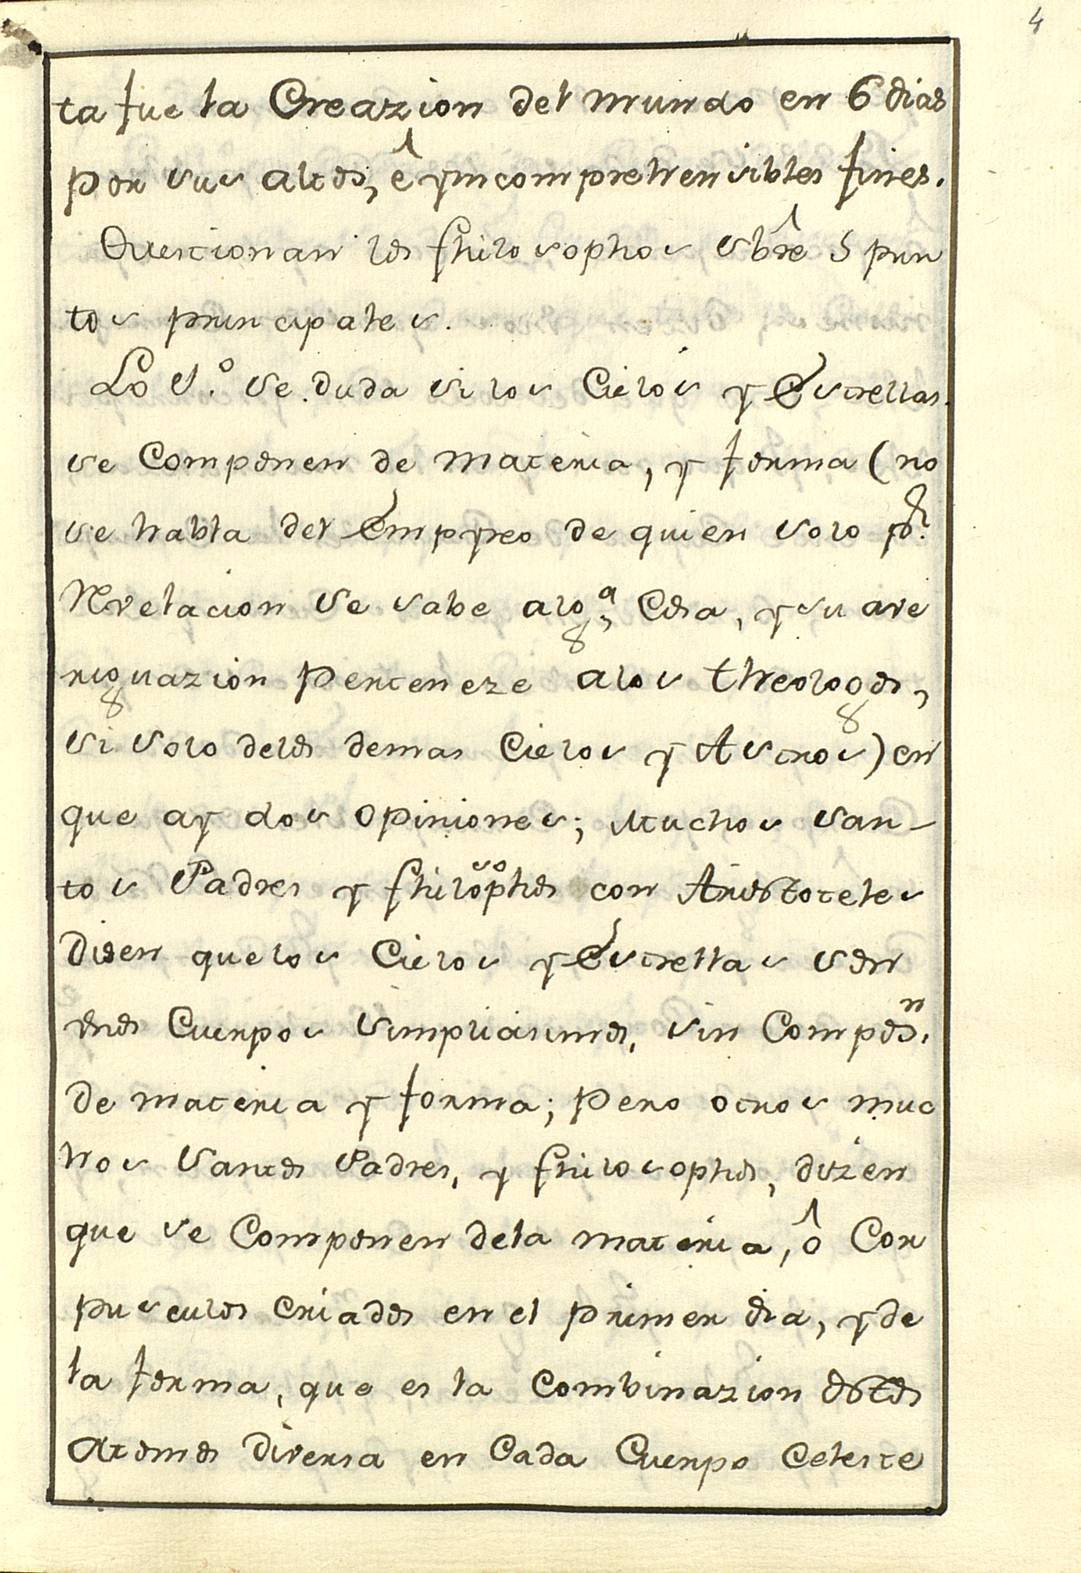 4
ta fue la Creazion del mundo en 6 dias
por sus altos, ê yncomprehensibles fines.
Questionan los philosophos sbrê 5 pun
tos principales.
Lo 1.º se duda si los Cielos y Estrellas
se Componen de materia, y forma (no
se habla del Empyreo de quien solo p.r
Revelacion se sabe alg.ª Cosa, y su ave
riguazion Perteneze alos theologos,
si solo delos demas Cielos y Astros) en
que ay dos opiniones; Muchos San-
tos Padres y philosophos con Aristoteles
disen quelos Cielos y Estrellas son
unos Cuerpos simplicisimos, sin Compos.n
de materia y forma; Pero otros muc
hos Santos Padres, y philosophos, dizen
que se Componen dela materia, ô Cor
pusculos criados en el primer dia, y de
la forma, que es la combinazion destos
atomos diversa en Cada Cuerpo Celeste